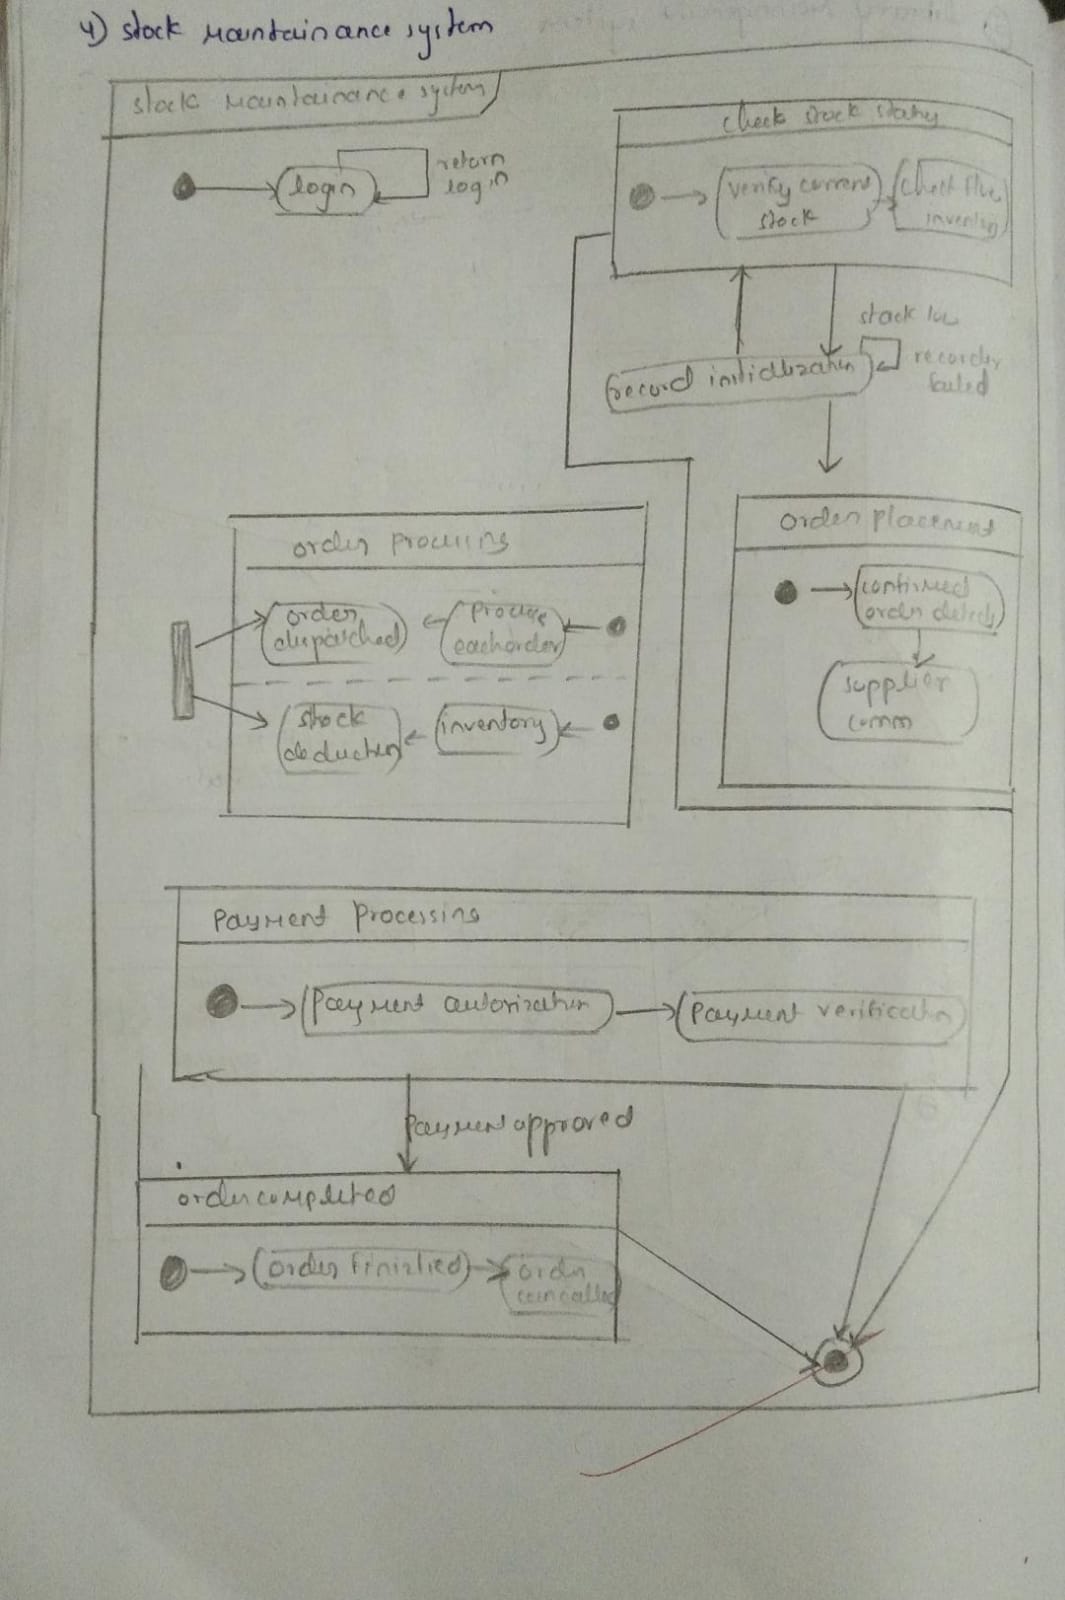 4) stock Maintainance system
stock Maintainance system
login
return
login
check stock status
verify current
stock
check the
inventory
stock low
record initialization
failed
order placement
confirmed
order details
supplier
comm
order processing
order
dispatched
process
each order
stock
deduction
inventory
Payment Processing
Payment autorization
Payment verification
Payment approved
order completed
order finishied
order
cancelled